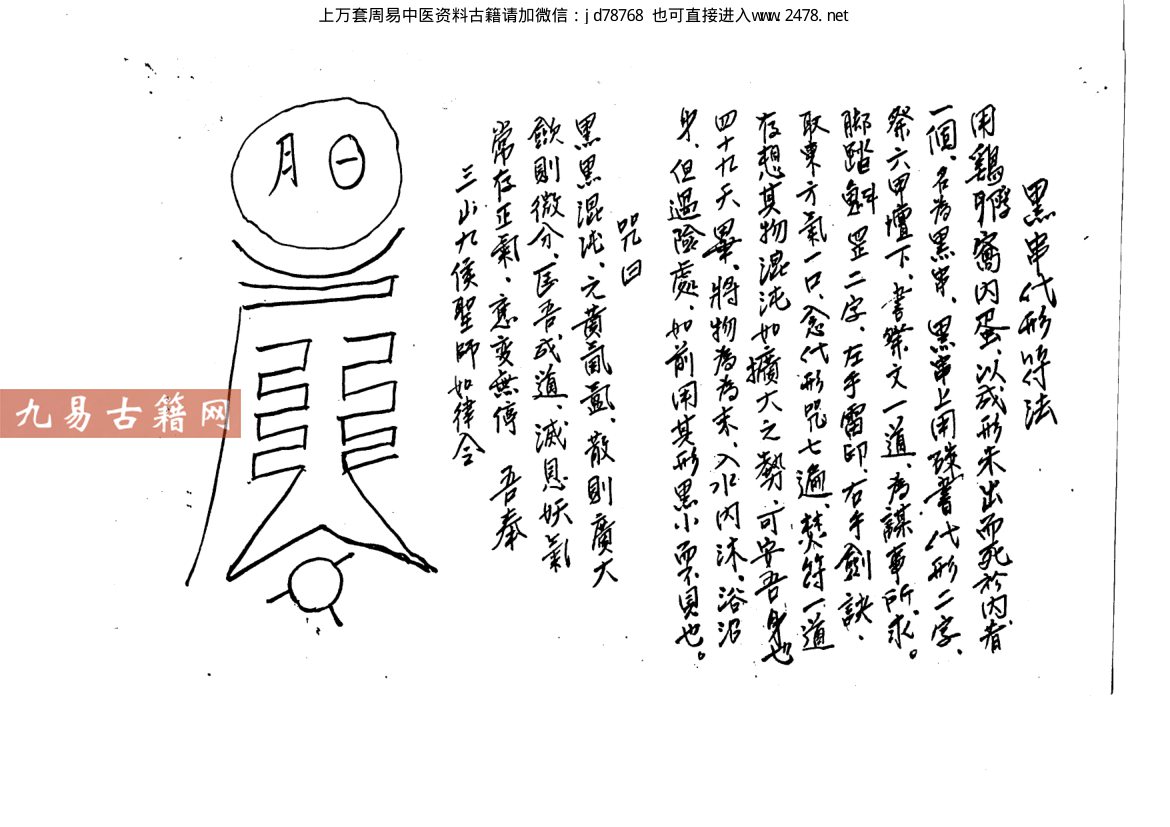 上万套周易中医资料古籍请加微信：jd78768 也可直接进入www.2478.net
黑串代形符法
用鷄孵窩内蛋、以成形未出而死於内者、
一個、名為黑串、黑串上用硃書代形二字、
祭六甲壇下、書祭文一道、為謀事所求。
脚踏魁罡二字、左手雷印、右手劍訣、
取東方氣一口、念代形咒七遍、焚符一道
存想其物混沌如擴大之勢、可安吾身也
四十九天畢、將物為為末、入水内沐、浴沼
身、但遇險處、如前用其形黑小而不見也。
咒曰
黑黑混沌、元黄氤氲、散則廣大
歛則微分、医吾成道、滅息妖氣
常存正氣、應变無停 吾奉
三山九侯聖師如律令
月 日
九易古籍网